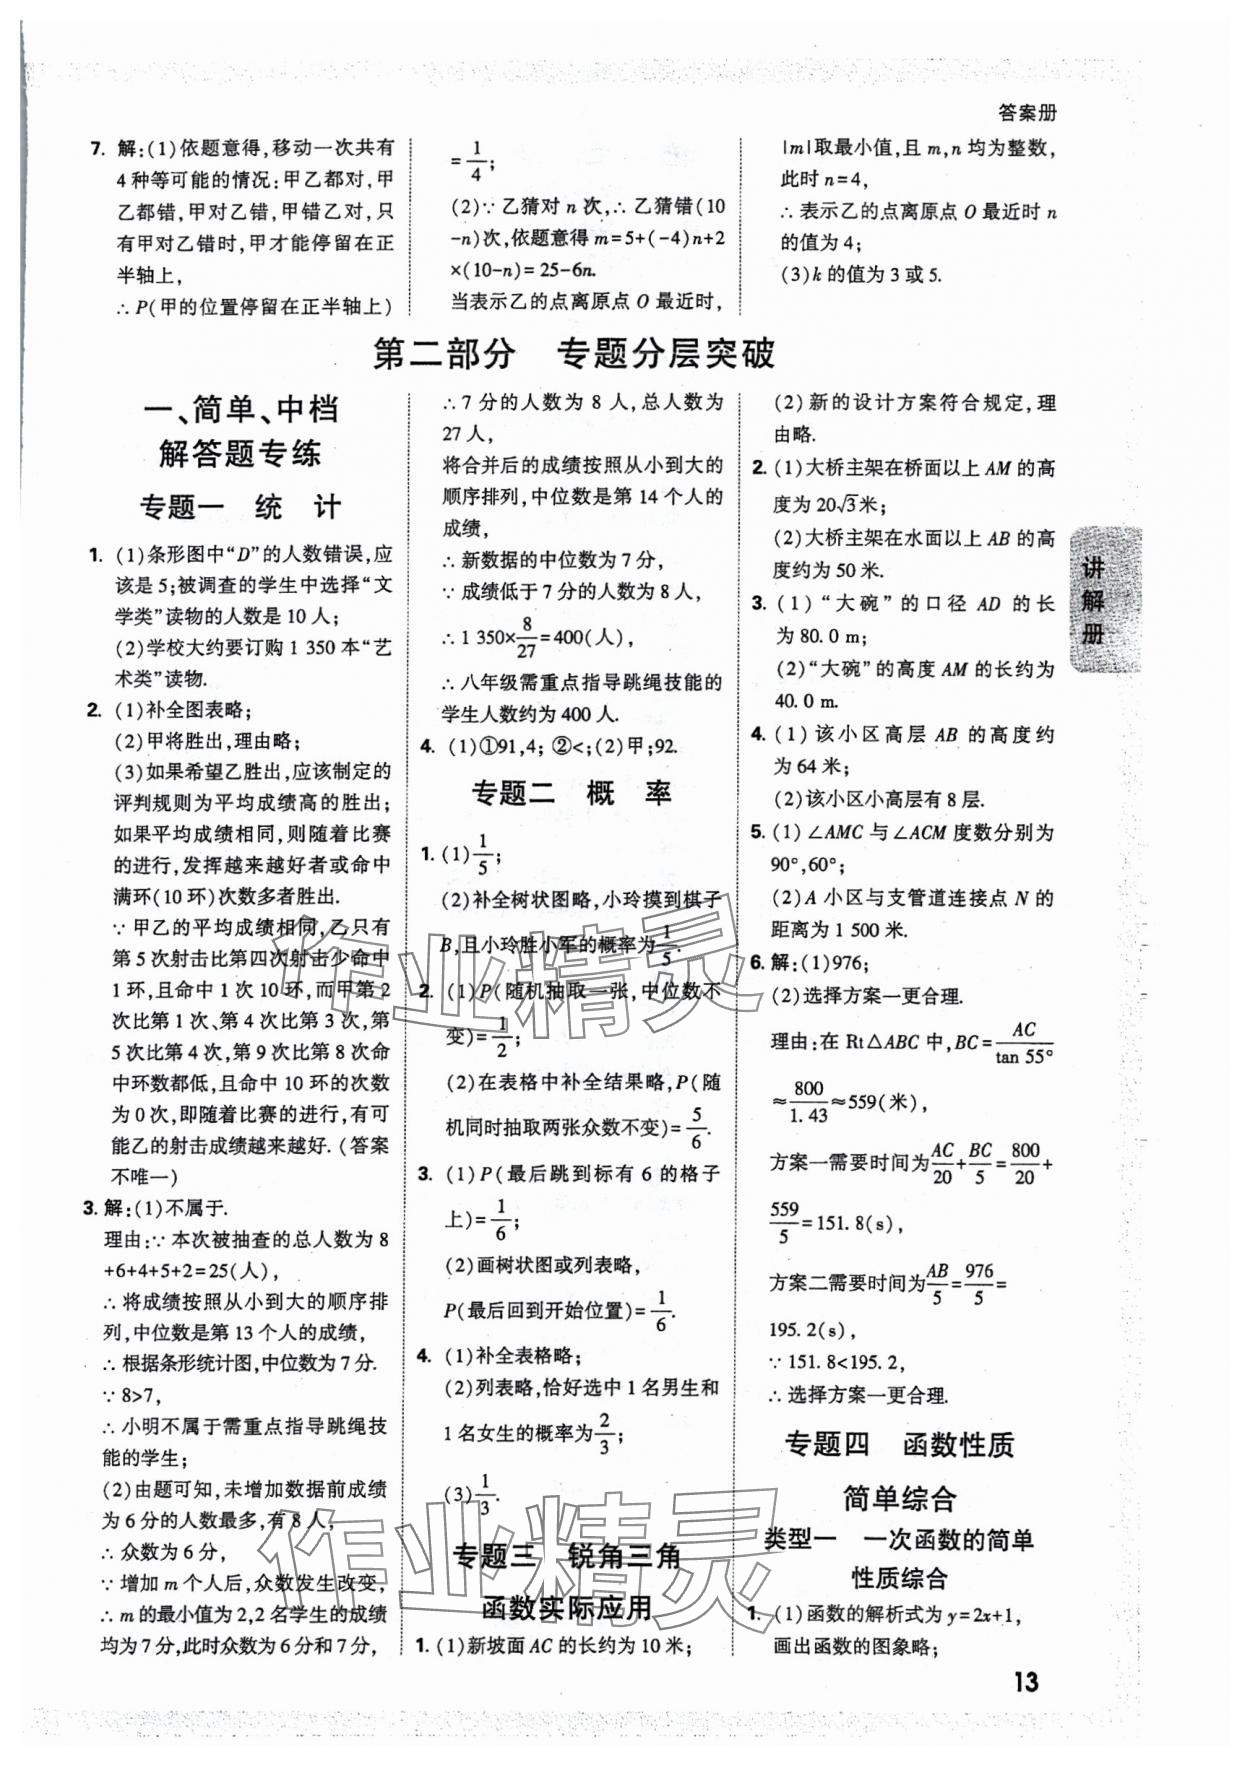 答案册
7. 解:(1)依题意得,移动一次共有
4种等可能的情况:甲乙都对,甲
乙都错,甲对乙错,甲错乙对,只
有甲对乙错时,甲才能停留在正
半轴上,
∴P(甲的位置停留在正半轴上)
=1/4;
(2)∵乙猜对n次,∴乙猜错(10
-n)次,依题意得m=5+(-4)n+2
×(10-n)=25-6n.
当表示乙的点离原点O最近时,
|m|取最小值,且m,n均为整数,
此时n=4,
∴表示乙的点离原点O最近时n
的值为4;
(3)k的值为3或5.
第二部分 专题分层突破
一、简单、中档
解答题专练
专题一 统 计
1. (1)条形图中“D”的人数错误,应
该是5;被调查的学生中选择“文
学类”读物的人数是10人;
(2)学校大约要订购1 350本“艺
术类”读物.
2. (1)补全图表略;
(2)甲将胜出,理由略;
(3)如果希望乙胜出,应该制定的
评判规则为平均成绩高的胜出;
如果平均成绩相同,则随着比赛
的进行,发挥越来越好者或命中
满环(10环)次数多者胜出.
∵甲乙的平均成绩相同,乙只有
第5次射击比第四次射击少命中
1环,且命中1次10环,而甲第2
次比第1次、第4次比第3次,第
5次比第4次,第9次比第8次命
中环数都低,且命中10环的次数
为0次,即随着比赛的进行,有可
能乙的射击成绩越来越好.(答案
不唯一)
3. 解:(1)不属于.
理由:∵本次被抽查的总人数为8
+6+4+5+2=25(人),
∴将成绩按照从小到大的顺序排
列,中位数是第13个人的成绩,
∴根据条形统计图,中位数为7分.
∵8>7,
∴小明不属于需重点指导跳绳技
能的学生;
(2)由题可知,未增加数据前成绩
为6分的人数最多,有8人,
∴众数为6分,
∵增加m个人后,众数发生改变,
∴m的最小值为2,2名学生的成绩
均为7分,此时众数为6分和7分,
∴7分的人数为8人,总人数为
27人,
将合并后的成绩按照从小到大的
顺序排列,中位数是第14个人的
成绩,
∴新数据的中位数为7分,
∵成绩低于7分的人数为8人,
∴1 350×8/27=400(人),
∴八年级需重点指导跳绳技能的
学生人数约为400人.
4. (1)①91,4;②<;(2)甲;92.
专题二 概 率
1. (1)1/5;
(2)补全树状图略,小玲摸到棋子
B,且小玲胜小军的概率为1/5.
2. (1)P(随机抽取一张,中位数不
变)=1/2;
(2)在表格中补全结果略,P(随
机同时抽取两张众数不变)=5/6.
3. (1)P(最后跳到标有6的格子
上)=1/6;
(2)画树状图或列表略,
P(最后回到开始位置)=1/6.
4. (1)补全表格略;
(2)列表略,恰好选中1名男生和
1名女生的概率为2/3;
(3)1/3.
专题三 锐角三角
函数实际应用
1. (1)新坡面AC的长约为10米;
(2)新的设计方案符合规定,理
由略.
2. (1)大桥主架在桥面以上AM的高
度为20√3米;
(2)大桥主架在水面以上AB的高
度约为50米.
3. (1)“大碗”的口径AD的长
为80.0 m;
(2)“大碗”的高度AM的长约为
40.0 m.
4. (1)该小区高层AB的高度约
为64米;
(2)该小区小高层有8层.
5. (1)∠AMC与∠ACM度数分别为
90°,60°;
(2)A小区与支管道连接点N的
距离为1 500米.
6. 解:(1)976;
(2)选择方案一更合理.
理由:在Rt△ABC中,BC=AC/tan 55°
≈800/1.43≈559(米),
方案一需要时间为AC/20+BC/5=800/20+
559/5=151.8(s),
方案二需要时间为AB/5=976/5=
195.2(s),
∵151.8<195.2,
∴选择方案一更合理.
专题四 函数性质
简单综合
类型一 一次函数的简单
性质综合
1. (1)函数的解析式为y=2x+1,
画出函数的图象略;
讲解册
13
作业精灵
作业精灵